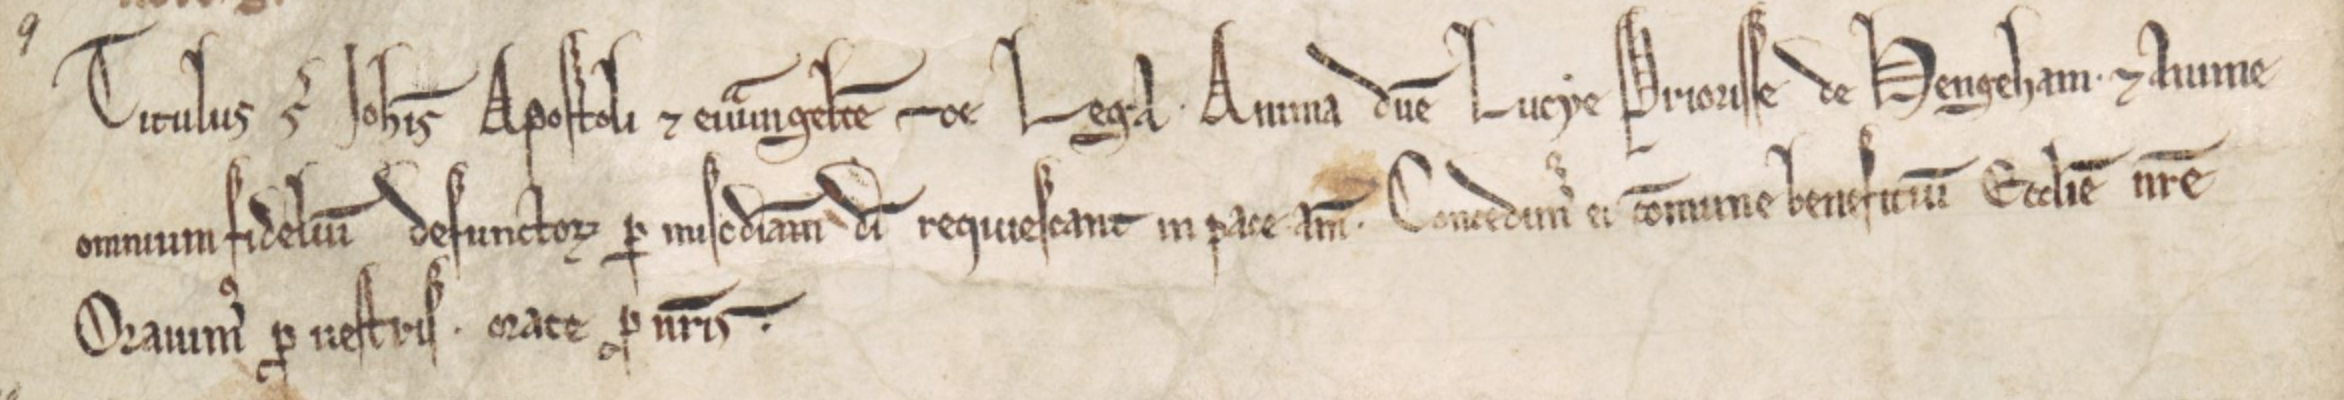 9
Titulus S̄ Joh̄is Apostoli ⁊ euuangel̄te de Lega. Anima dn̄e Lucye Priorisse de Hengeham. ⁊ Anime
omnium fideliū defunctoꝝ ꝑ misc̄diam dī requiescant in pace am̄. Concedimꝰ ei cōmune beneficiū Eccl̄ie nr̄e
Orauimꝰ ꝓ uestris. orate ꝓ nr̄is.